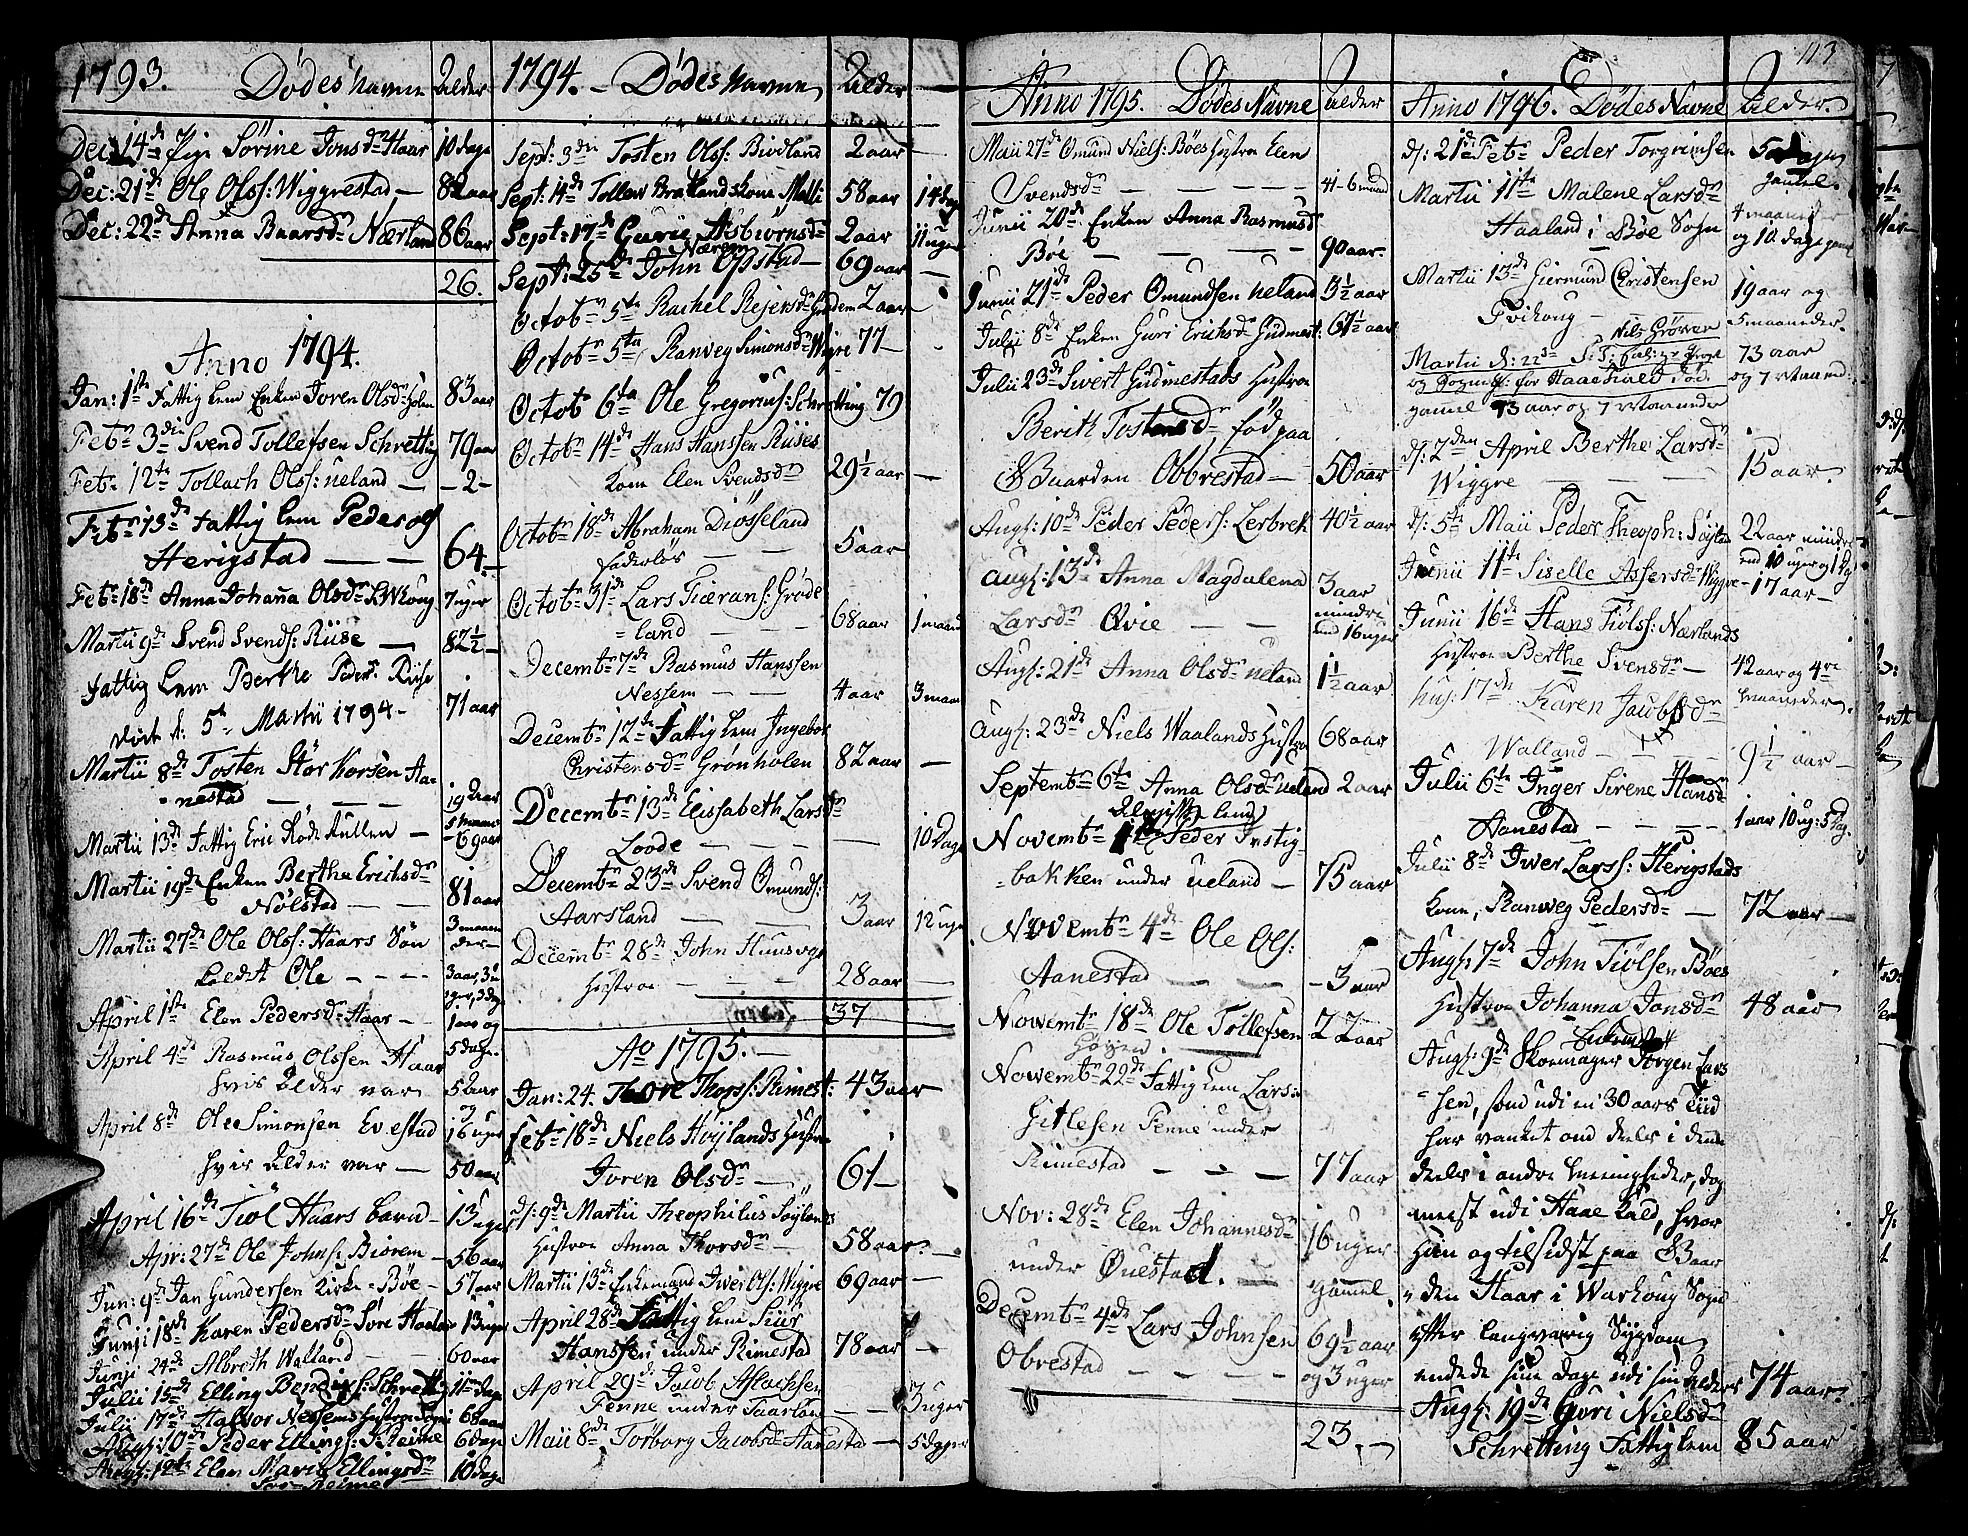 1793. Dødes Navne Alder
Dec: 14de Pige Sörine Jonsdr Haar 10 dage
Dec: 21de Ole Olss: Wiggrestad 82 aar
Dec: 22de Anna Baarsdr Nærland 86 aar
26.
Anno 1794.
Jan: 1ste Fattig Lem Enken Joren Olsdr Holen 83 aar
Febr 3die Svend Tollefsen Schretting 79 aar
Febr 12te Tollach Olss: Ueland 2
Febr 13de Fattig Lem Peder
Herigstad 64
Febr 18de Anna Johanna Olsdr 7 uger
Martii 9de Svend Svends: Riise 82½
Fattig Lem Berthe Peders: Riise
død d: 5t Martii 1794 71 aar
Martii 8de Tosten Störkorsen Aa=
nestad 19 Aar
Martii 13de Fattig Eric 69 aar
Martii 19de Enken Bertha Ericksdr
Nølstad 81 aar
Martii 27de Ole Olss: Haars Sön 3 maane
der
kaldet Ole 3 aar, 3 u
ger, 3 dage
April 1ste Elen Pedersdr Haar 1 aar og
April 4de Rasmus Olssen Haar 5 dage
hvis Alder var 52 aar
April 8de Ole Simonsen Evestad 16 uger
hvis Alder var 50 aar
April 16de Tiöl Haars barn 13 uger
Apr: 27de Ole Johns: Biorem 56 aar
Jun: 9de Jan Gundersen Kirke=Bøe 57 aar
Junji 18de Karen Pedersdr Søre 13 uger
Junji 24de Albreth Walland 60 aar
Julii 15de Elling 11 dage
Julii 17de Halvor Nessems Hustroe 68 aar
Aug: 10de Peder Ellings: Reime 6 dage
Aug: 12te Elen Maria Ellingsdr 10 dage
Reime
1794. Dødes Navne Alder
Sept: 3die Tosten Olss: Birkland 2 aar
Sept: 14de Tollew Bratlands kone Malli 58 aar 14 dage
Sept: 17de Gurie Asbiørnsdr 2 aar 11 uger
Nærem
Sept: 25de John Opstad 69 aar
Octobr 5te Rachel Rejersdr Grødem 2 aar
Octobr 5te Ranveg Simonsdr Wigre 77
Octobr 6te Ole Gregorius: Schretting 79
Octobr 14de Hans Hanssen Riises
Kone Elen Svendsdr 29½ aar
Octobr 18de Abraham Diösseland
Faderløs 5 aar
Octobr 31de Lars Grøde
=land 68 aar 1 maaned
Decembr 7de Rasmus Hanssen
Nessem 4 aar 3 maan
Decembr 12te Fattig Lem Ingebor
Christensdr Grønholen 82 aar
Decembr 13de Elissabeth Larsdr
Loode 10 Dage
Decembr 23de Svend Omunds:
Aarsland 3 aar 12 uger
Decembr 28de John
Hustroe 28 aar
37
Ao 1795.
Jan: 24. Tore Thorss: Rimest: 43 aar
Febr 18de Niels Höjlands Hustroe
Joren Olsdr 61
d: 9de Martii Theophilus Söylands
Hustroe Anna Thorsdr 58 aar
Martii 13de Enkemand Iwer Ols: Wiggre 69 aar
April 28de Fattig Lem Siur
Hanssen under Rimestad 78 aar
April 29de Jacob Aslachsen
Penne under Taarland 3 uger
Maii 8de Torborg Jacobsdr Hanestad 5 dager
Anno 1795. Dødes Navne Alder
Maii 27de Omund Niels: Böes Hustroe Elen
Svendsdr 41-6 maand
Junii 20de Enken Anna Rasmusd
Böe 90 aar
Junii 21de Peder Omundsen Ueland 3½ aar
Julii 8de Enken Guri Ericksdr Gudmest: 67½ aar
Julii 23de Sivert Gudmestads Hustroe
Berith Tostensdr, fød paa
Gaarden Obbrestad 50 aar
Aug: 10de Peder Peders: Lerbrek 40½ aar
Aug: 13de Anna Magdalena 3 aar
mindre
Larsdr Qvie end 16 uger
Aug: 21de Anna Olsdr Ueland 1½ aar
Aug: 23de Niels Waalands Hustroe 68 aar
Septembr 6te Anna Olsdr Ueland 2 aar
Almisse Lem
Novembr Peder Instig=
=bakken under Ueland 75 aar
Novembr 4de Ole Ols:
Aanestad 3 aar
Novembr 18de Ole Tollefsen 22 aar
Højen
Novembr 22de Fattig Lem Lars
Gitlesen Penne under
Rimestad 77 aar
Nov: 28de Elen Johannesdr 16 uger
under Questad. gammel
Decembr 4de Lars Johnsen 69½ aar
Obrestad og 3 uger
23.
113
Anno 1796. Dødes Navne Alder.
d: 21de Febr Peder Torgrimsen 5 dage
gamel.
Martii 11te Malene Larsdr 4 maaneder
Haaland i Böe Sogn og 10 dage gamel
Martii 13de Giermund Christensen 19 aar og
Tvihoug 5 maaneder.
Nils Grøwen
Martii d: 22de S: T: 73 aar
og Sogneps: for Haae Kald død og 7 Maaned:
gamel 73 aar og 7 Maaneder
d: 2den April Berthe Larsdr
Wiggre 15 aar.
d: 5te Maii Peder Theoph: Söyland 22 aar mindre
end 10 uger og 1 Dag
Junii 11te Siselle Assersdr Wiggre 17 aar
Junii 16de Hans Tiölss: Nærlands
Hustroe Berthe Svensdr 42 aar og 4re
maaneder.
17de Karen Jacobsdr
Walland 9½ aar
Julii 6te Inger Sirene Hansd
Aanestad 1 aar 10 ug: 5 Dag.
Julii 8de Iwer Larss: Herigstads
kone, Ranweg Pedersdr 72 aar
Aug: 7de John Tiölsen Böes
Hustroe Johanna Jonsdr 48 aar
Enkemand
Aug: 9de Skoemager Jörgen Lars
=sen, som udi en 30 aars Tiid
har vanket om deels i denne
deels i andre Meenigheder, dog
meest udi Haae Kald, hvor
han og tilsidst paa Gaar
=den Haar i Warhoug Sogn
efter langvarig Sygdom
endede sine Dage udi sin Alders 74 aar
Aug: 19de Guri Nielsdr
Schretting Fattiglem 85 aar